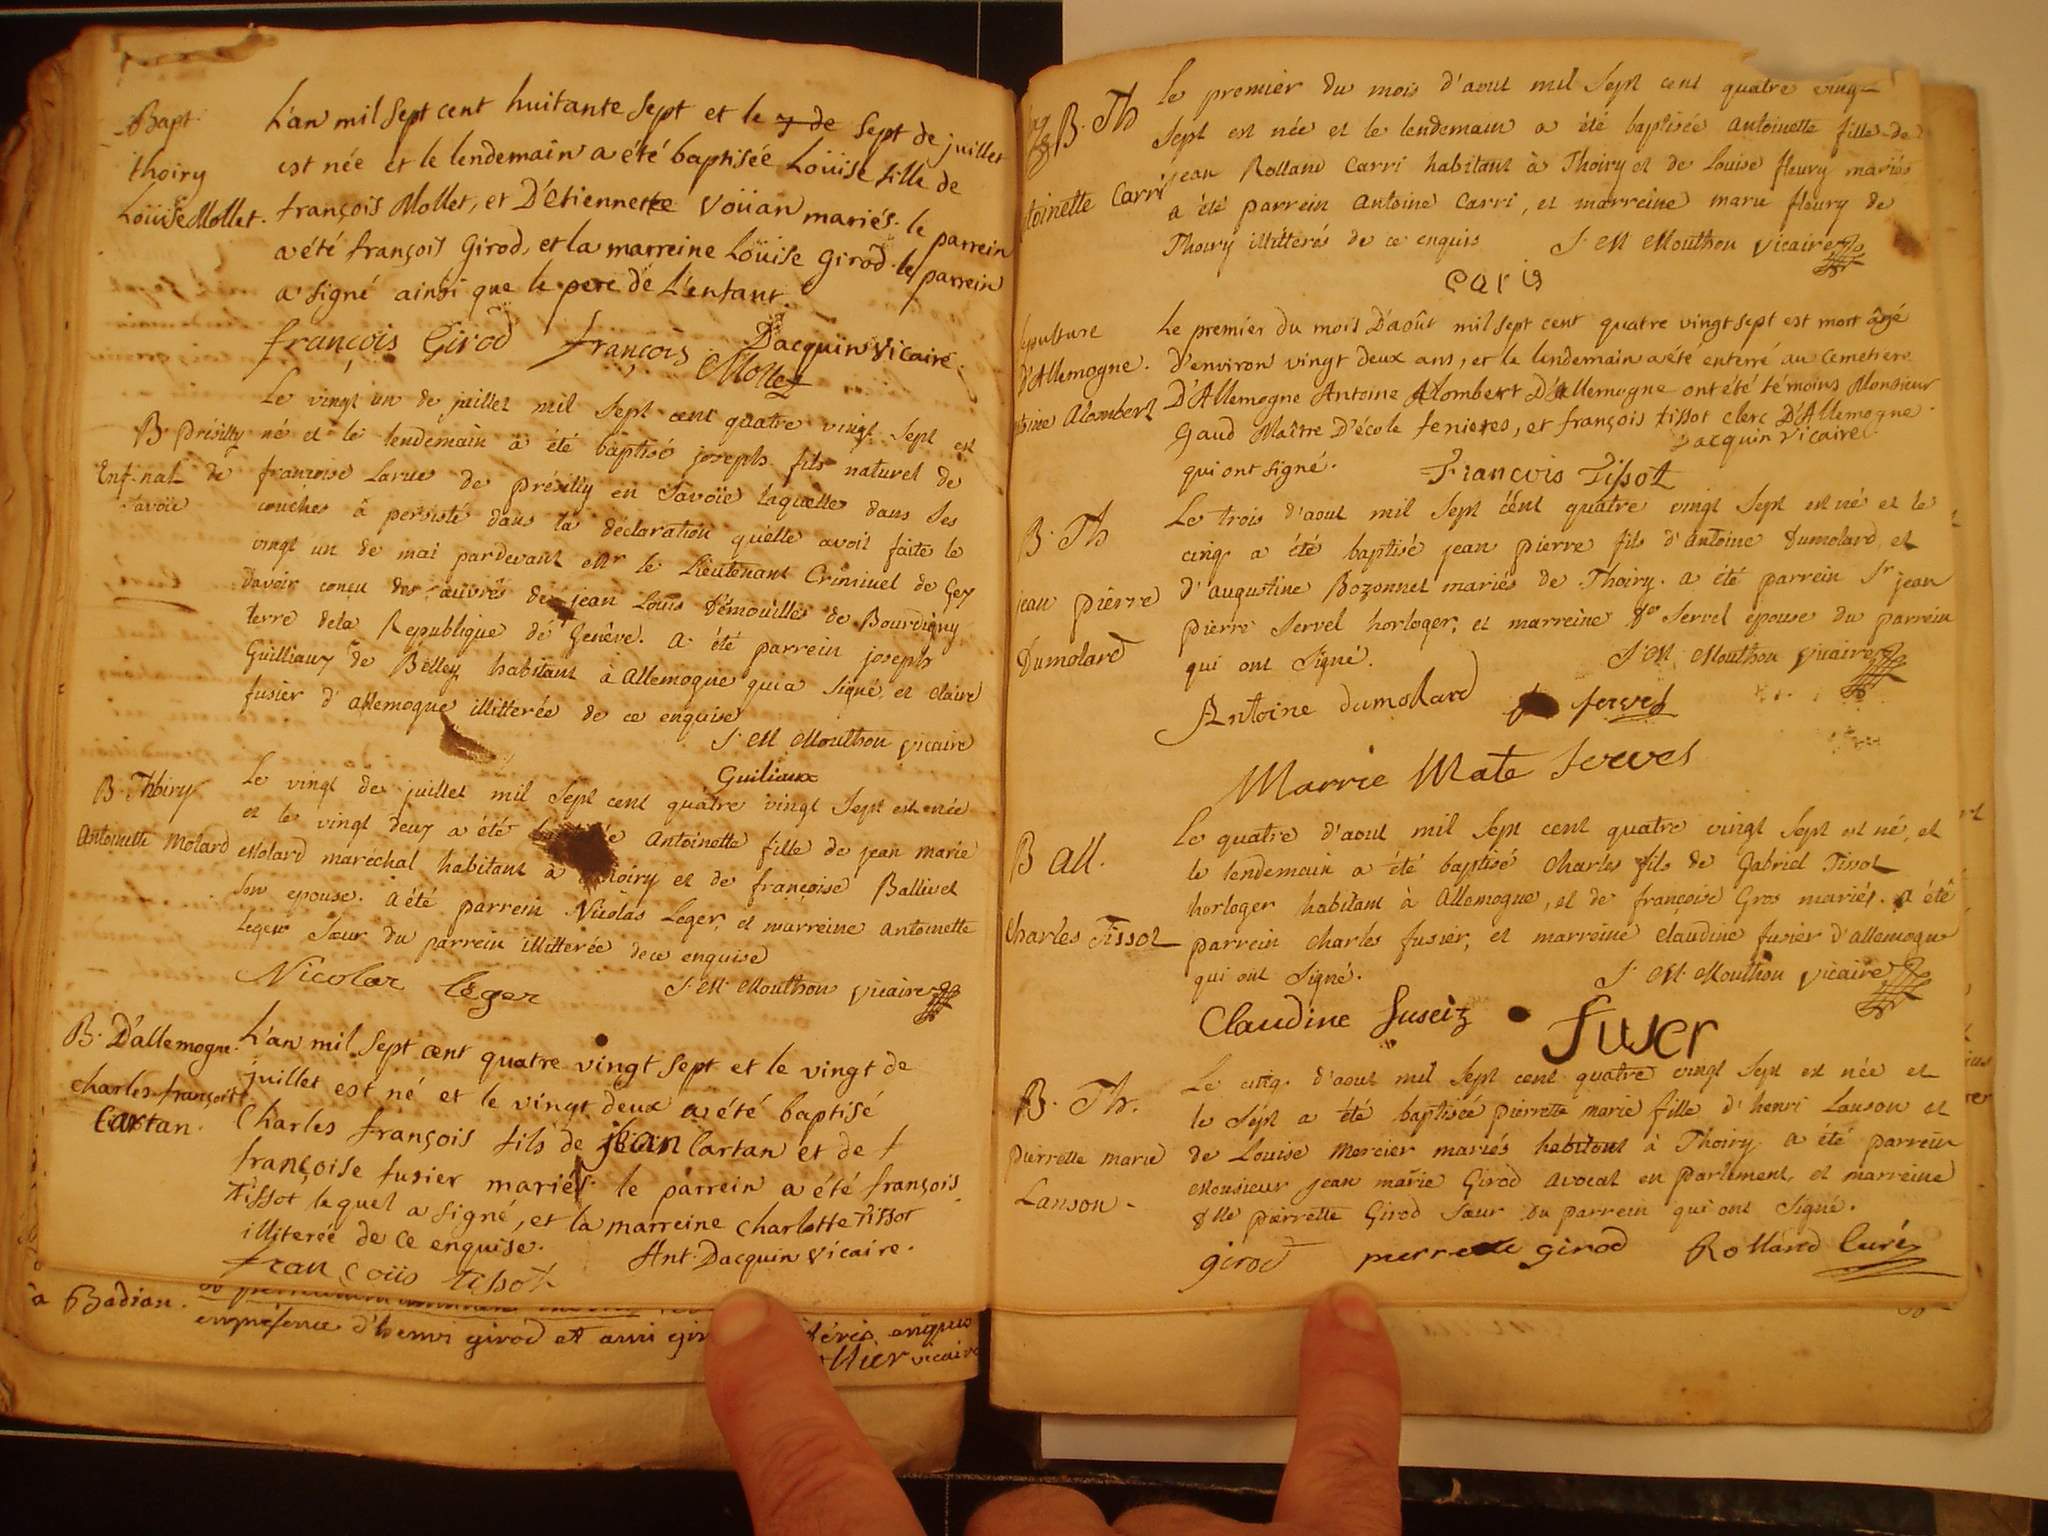 Bapt
Thoiry
Loüise Mollet.
L'an mil sept cent huitante sept et le sept de juillet
est née et le lendemain a été baptisée Loüise fille de
françois Mollet, et D'etiennette Voüan mariés. le parrein
a été françois Girod, et la marreine Loüise Girod. le parrein
a signé ainsi que le pere de L'enfant.
françois Girod françois Mollet Dacquin Vicaire.
B. Présilly
Enf. nat. de
Savoïe
Le vingt un de juillet mil Sept cent quatre vingt Sept est
né et le lendemain a été baptisé joseph fils naturel de
francoise Larue de présilly en Savoïe laquelle dans Ses
couches a persisté dans la déclaration qu'elle avoit faite le
vingt un de mai pardevant Mr le Lieutenant Criminel de Gex
d'avoir conçu des œuvres de jean Louis Démouilles de Bourdigny
terre dela Republique de Genêve. a été parrein joseph
Guilliaux de Belley habitant à allemogne qui a signé et claire
fusier d'allemogne illitterée de ce enquise
J. M. Mouthon vicaire
Guiliaux
B. Thoiry
Antoinette Molard
Le vingt de juillet mil Sept cent quatre vingt Sept est née
et le vingt deux a été Antoinette fille de jean marie
Molard maréchal habitant à Thoiry et de françoise Ballivet
Son epouse. a été parrein Nicolas Leger, et marreine antoinette
Leger Sœur du parrein illitterée de ce enquise
Nicolar leger J. M. Mouthon vicaire
B. D'allemogne.
charles françois
Cartan.
L'an mil sept cent quatre vingt sept et le vingt de
juillet est né et le vingt deux a été baptisé
Charles françois fils de jean Cartan et de
françoise fusier mariés. le parrein a été françois
tissot lequel a signé, et la marreine charlotte tissot
illiterée de ce enquise.
Ant. Dacquin Vicaire.
francoiis tissot
à Badian.
en présence d'henri girod et ami enquis
vicaire
B. Th
toinette Carri
Le premier du mois d'aout mil Sept cent quatre ving
Sept est née et le lendemain a été baptisée antoinette fille de
jean Rolland Carri habitant à Thoiry et de Louise fleury mariés
a été parrein antoine Carri, et marreine marie fleury de
Thoiry illitterés de ce enquis J. M. Mouthon vicaire
caris
sepulture
d'Allemogne.
toine Alombert
Le premier du mois D'août mil sept cent quatre vingt sept est mort âgé
d'environ vingt deux ans, et le lendemain a été enterré au cemetiere
D'Allemogne Antoine Alombert D'allemogne ont été témoins Monsieur
Gaud Maître D'école fenieres, et françois tissot clerc D'Allemogne.
qui ont signé. Dacquin Vicaire
François Tissot
B. Th
jean pierre
Dumolard
Le trois d'aout mil Sept cent quatre vingt Sept est né et le
cinq a été baptisé jean pierre fils d'antoine Dumolard et
d'augustine Bozonnet mariés de Thoiry. a été parrein Sr jean
pierre Servel horloger, et marreine Servel epouse du parrein
qui ont signé. J. M. Mouthon vicaire
Antoine dumolard servel
Marrie Mate servel
B all.
Charles Tissot
Le quatre d'aout mil Sept cent quatre vingt Sept est né, et
le lendemain a été baptisé charles fils de Gabriel Tissot
horloger habitant à allemogne, et de françoise Gros mariés. a été
parrein charles fusier, et marreine claudine fusier d'allemogne
qui ont Signé. J. M. Mouthon vicaire
Claudine fuseiz fusier
B. Th.
pierrette marie
Lanson.
Le cinq d'aout mil Sept cent quatre vingt Sept est née et
le Sept a été baptisée pierrette marie fille d'henri Lanson et
de Louise Mercier mariés habitant à Thoiry a été parrein
Monsieur jean marie Girod avocat en parlement, et marreine
Dlle pierrette Girod Sœur du parrein qui ont signé.
girod pierrette girod Rolland Curé